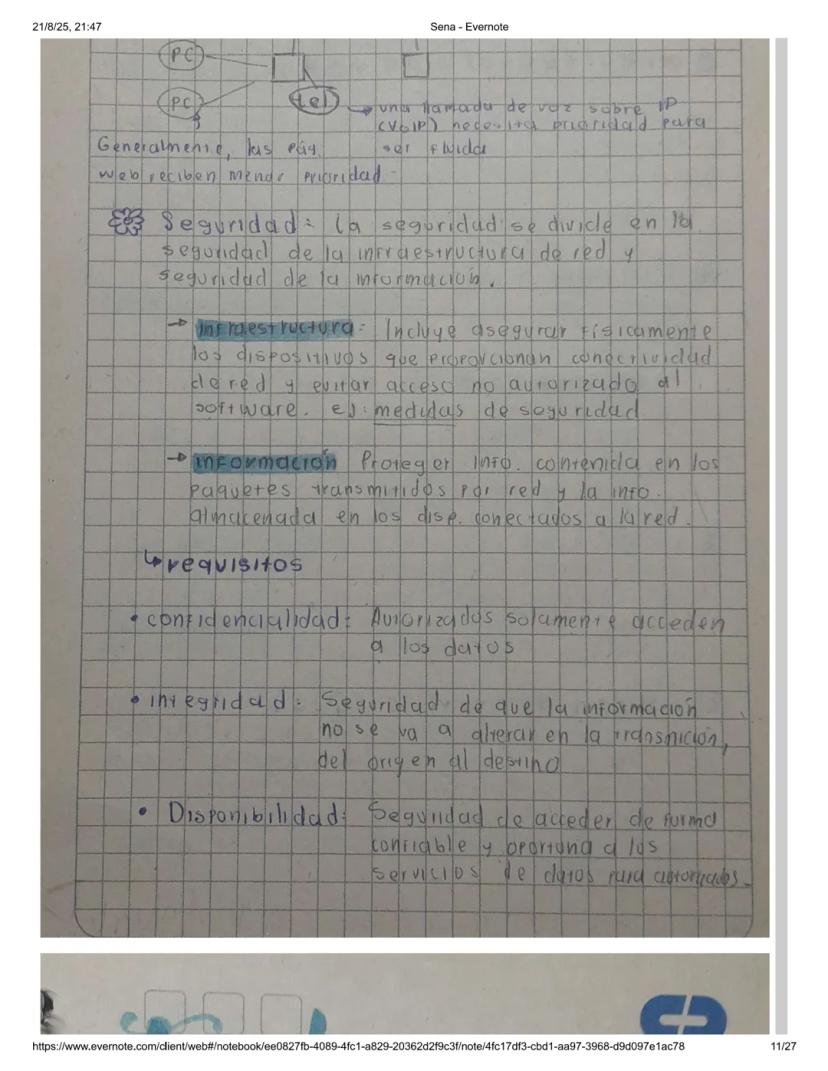 21/8/25, 21:47
Sena - Evernote
PC
PC
tel
→ una llamada de voz sobre IP
(VoIP) necesita prioridad para
ser fluida
Generalmente, las pág.
web reciben menor prioridad
Seguridad: la seguridad se divide en la
seguridad de la infraestructura de red y
seguridad de la información.
→ infraestructura: Incluye asegurar físicamente
los dispositivos que proporcionan conectividad
de red y evitar acceso no autorizado al
software. ej: medidas de seguridad
→ información Proteger info. contenida en los
paquetes transmitidos por red y la info.
almacenada en los disp. conectados a la red.
↳ requisitos
• confidencialidad: Autorizados solamente acceden
a los datos
• integridad: Seguridad de que la información
no se va a alterar en la transmición,
del origen al destino
• Disponibilidad: Seguridad de acceder de forma
confiable y oportuna a los
servicios de datos para autorizados.
https://www.evernote.com/client/web#/notebook/ee0827fb-4089-4fc1-a829-20362d2f9c3f/note/4fc17df3-cbd1-aa97-3968-d9d097e1ac78
11/27